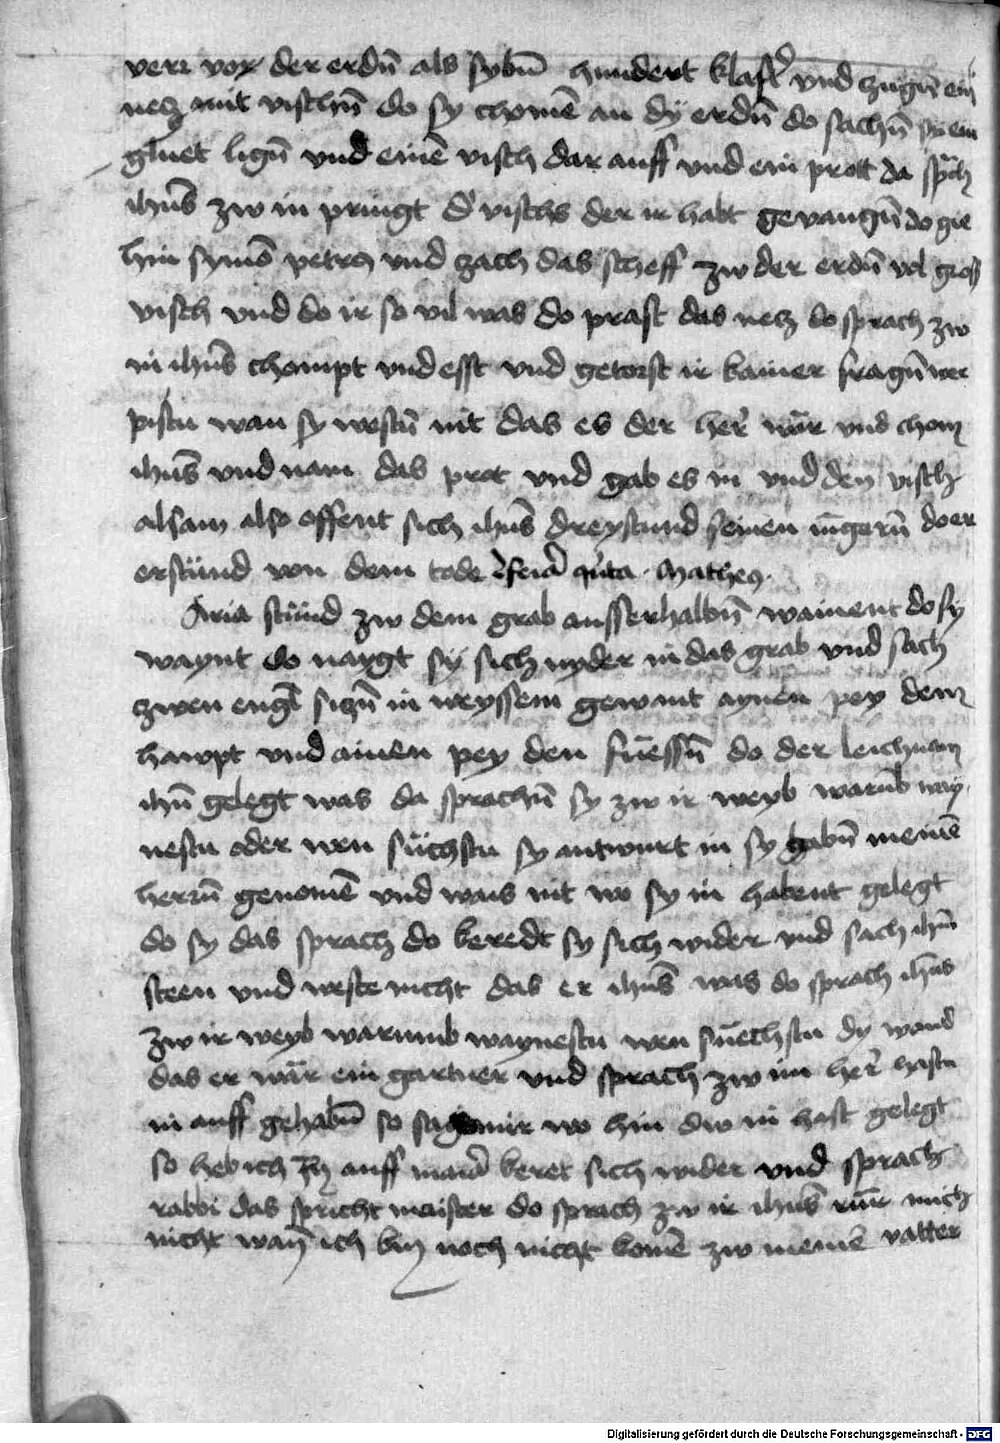 verr vor der erdn̄ als sybn̄ hundert klaft̕ vnd zugn̄ ein
netz mit vischn̄ do sy chomē an dy erdn̄ do sachn̄ sy ein
gluet lign̄ vnd einē visch dar auff vnd ein prott da sp̄ch
ihūs zw in pringt d̕ vischs der ir habt gevangn̄ do gie
hin symō petrus vnd zach das scheff zw der erdn̄ vol gross
visch vnd do ir so vil was do prast das netz do sprach zw
in ihūs chompt vnd esst vnd getorst ir kainer fragn̄ wer
pistu wan sy westn̄ nit das es der her̕ wär vnd chom
ihūs vnd nam das prot vnd gab es in vnd den visch
alsam also offent sich ihūs dreystund seinen iūgern̄ do er
erstŭnd von dem tode feīa q̄nta Matheus
Aria stŭnd zw dem grab ausserhalbn̄ wainent do sy
waynt do naygt sy sich nyder in das grab vnd sach
zwen engl̄ sizn̄ in weyssem gewant aynen pey dem
hawpt vnd ainen pey den fŭessn̄ do der leichnam
ihū gelegt was da sprachn̄ sy zw ir weyb warūb way
nestu oder wen sŭchstu sy antwurt in sy habn̄ meinē
herrn̄ genomē vnd wais nit wo sy in habent gelegt
do sy das sprach do beredt sy sich wider vnd sach ihm̄
steen vnd weste nicht das er ihūs was do sprach ihūs
zw ir weyb warumb waynestu wen sŭechstu dy wand
das er wär ein gartner vnd sprach zw im her̕ hastu
in auff gehabn̄ so sag mir wo hin dw in hast gelegt
so heb ich in auff maīa beret sich wider vnd sprach
rabbi das spricht maister do sprach zw ir ihūs rŭr mich
nicht wan̄ ich bin noch nicht komē zw meinē vatter
Digitalisierung gefördert durch die Deutsche Forschungsgemeinschaft - DFG